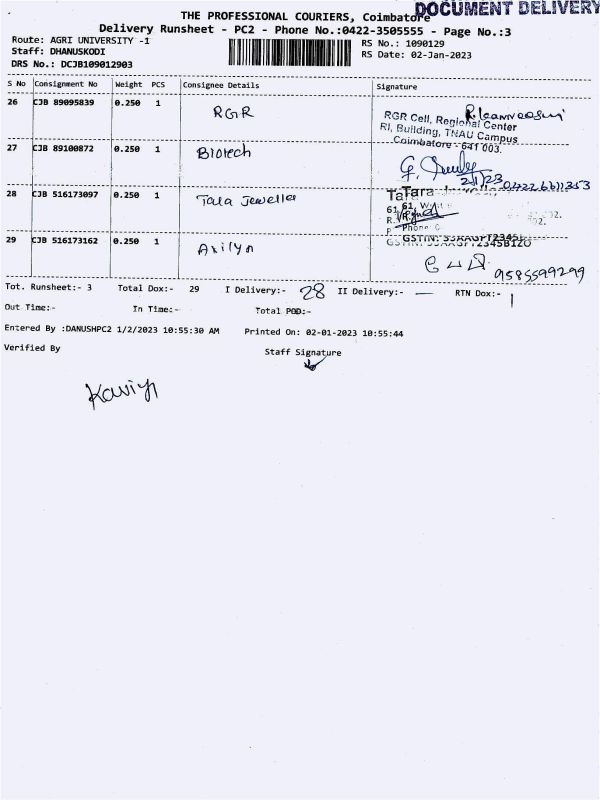 DOCUMENT DELIVERY
THE PROFESSIONAL COURIERS, Coimbatore
Delivery Runsheet - PC2 - Phone No.:0422-3505555 - Page No.:3
Route: AGRI UNIVERSITY -1
RS No.: 1090129
Staff: DHANUSKODI
RS Date: 02-Jan-2023
DRS No.: DCJB109012903
S No Consignment No Weight PCS Consignee Details Signature
26 CJB 89095839 0.250 1 RGR
RGR Cell, Regional Center
RI, Building, TNAU Campus
Coimbatore - 641 003.
27 CJB 89100872 0.250 1 Biotech
2/1/23 0422 6611353
28 CJB 516173097 0.250 1 Tala Jeweller
Tara
61, West
Phone
GSTIN:
29 CJB 516173162 0.250 1 Axilyn
9585599299
Tot. Runsheet:- 3 Total Dox:- 29 I Delivery:- 28 II Delivery:- — RTN Dox:- 1
Out Time:- In Time:- Total POD:-
Entered By :DANUSHPC2 1/2/2023 10:55:30 AM Printed On: 02-01-2023 10:55:44
Verified By Staff Signature
Kaviya